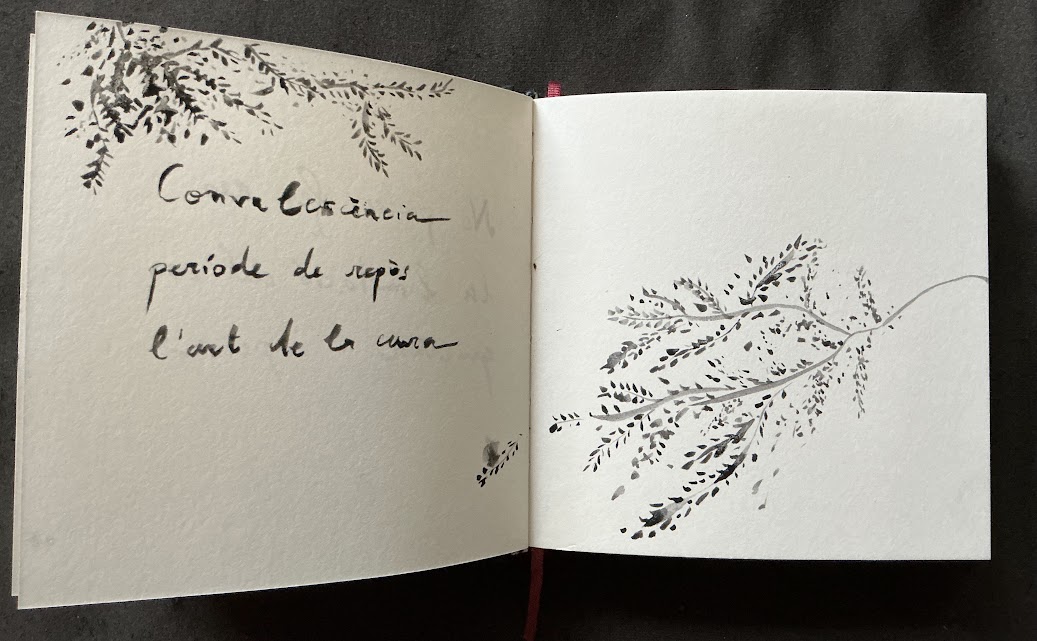 Convalescència
període de repòs
l'art de la cura